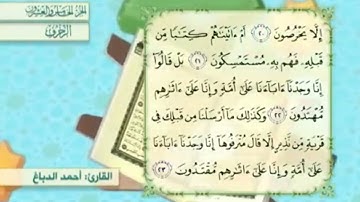 الجزء الخامس والعشرون
الزخرف
إِلَّا يَخْرُصُونَ ٢٠ أَمْ ءَاتَيْنَٰهُمْ كِتَٰبًا مِّن
قَبْلِهِۦ فَهُم بِهِۦ مُسْتَمْسِكُونَ ٢١ بَلْ قَالُوٓا۟
إِنَّا وَجَدْنَآ ءَابَآءَنَا عَلَىٰٓ أُمَّةٍ وَإِنَّا عَلَىٰٓ ءَاثَٰرِهِم
مُّهْتَدُونَ ٢٢ وَكَذَٰلِكَ مَآ أَرْسَلْنَا مِن قَبْلِكَ فِى
قَرْيَةٍ مِّن نَّذِيرٍ إِلَّا قَالَ مُتْرَفُوهَآ إِنَّا وَجَدْنَآ ءَابَآءَنَا
عَلَىٰٓ أُمَّةٍ وَإِنَّا عَلَىٰٓ ءَاثَٰرِهِم مُّقْتَدُونَ ٢٣
القارئ: أحمد الدباغ